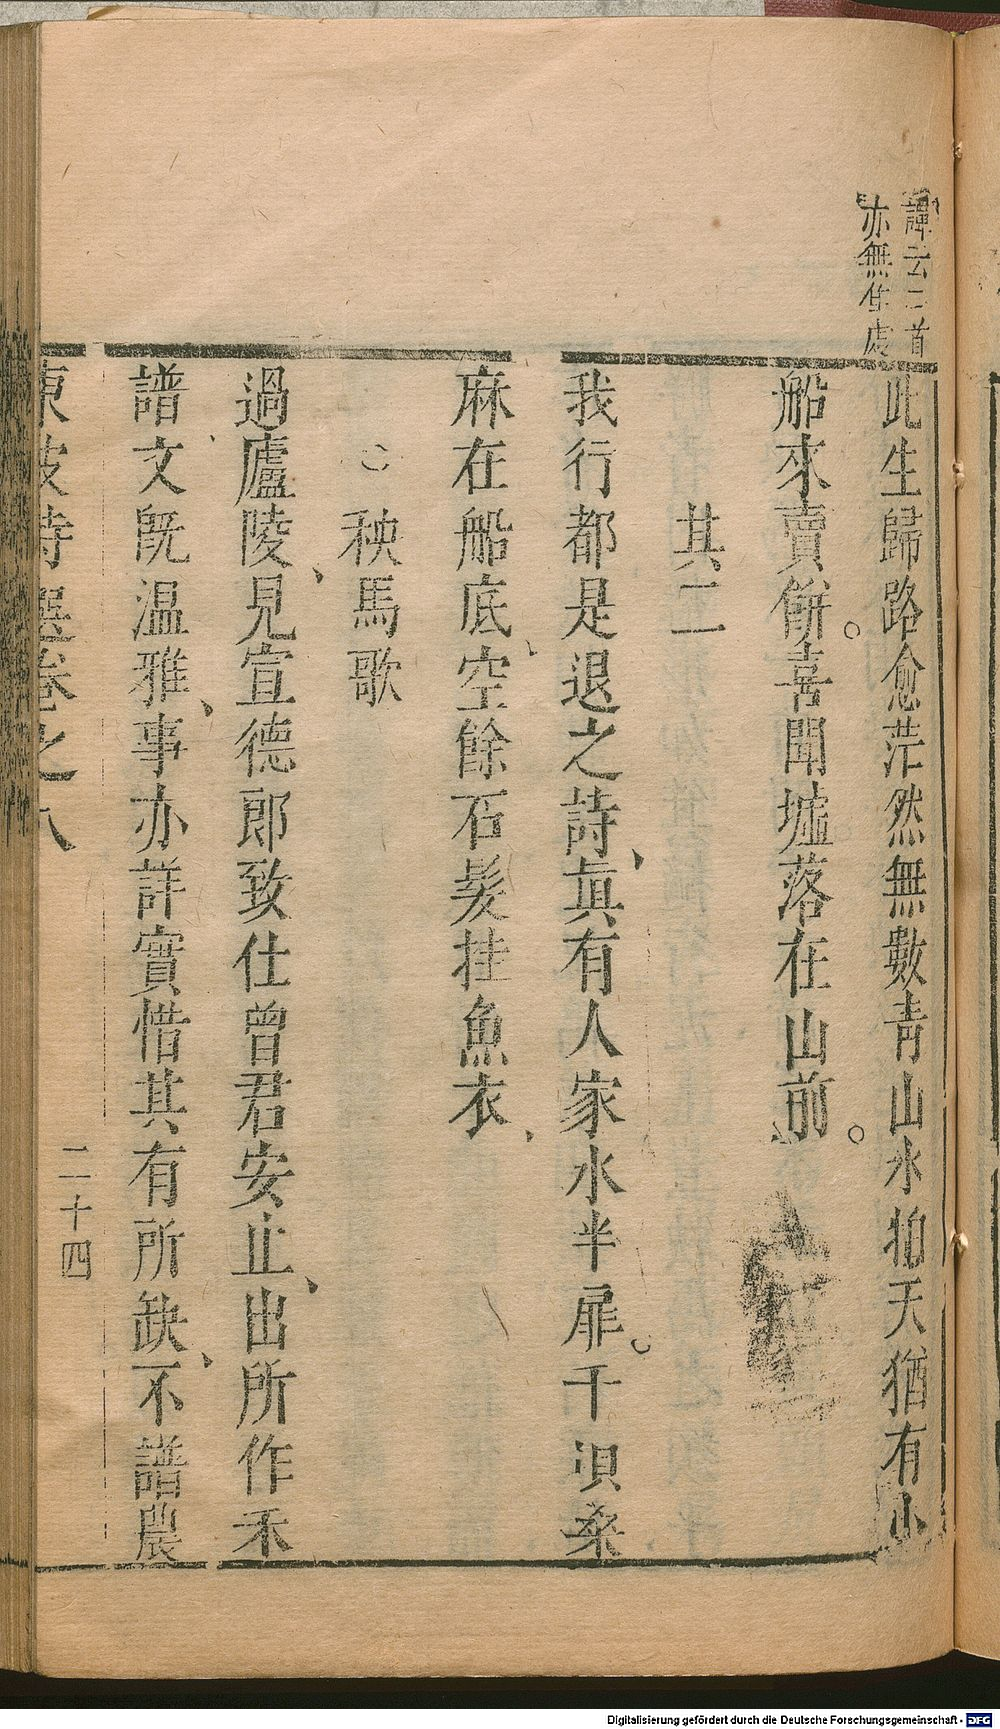 譚云二首
亦無住處
此生歸路愈茫然無數青山水拍天猶有小
船來賣餅喜聞墟落在山前
其二
我行都是退之詩真有人家水半扉千頃桑
麻在船底空餘石髮挂魚衣
秧馬歌
過廬陵見宣德郎致仕曾君安止出所作禾
譜文既温雅事亦詳實惜其有所缺不譜農
東坡詩選卷之八
二十四
Digitalisierung gefördert durch die Deutsche Forschungsgemeinschaft - DFG